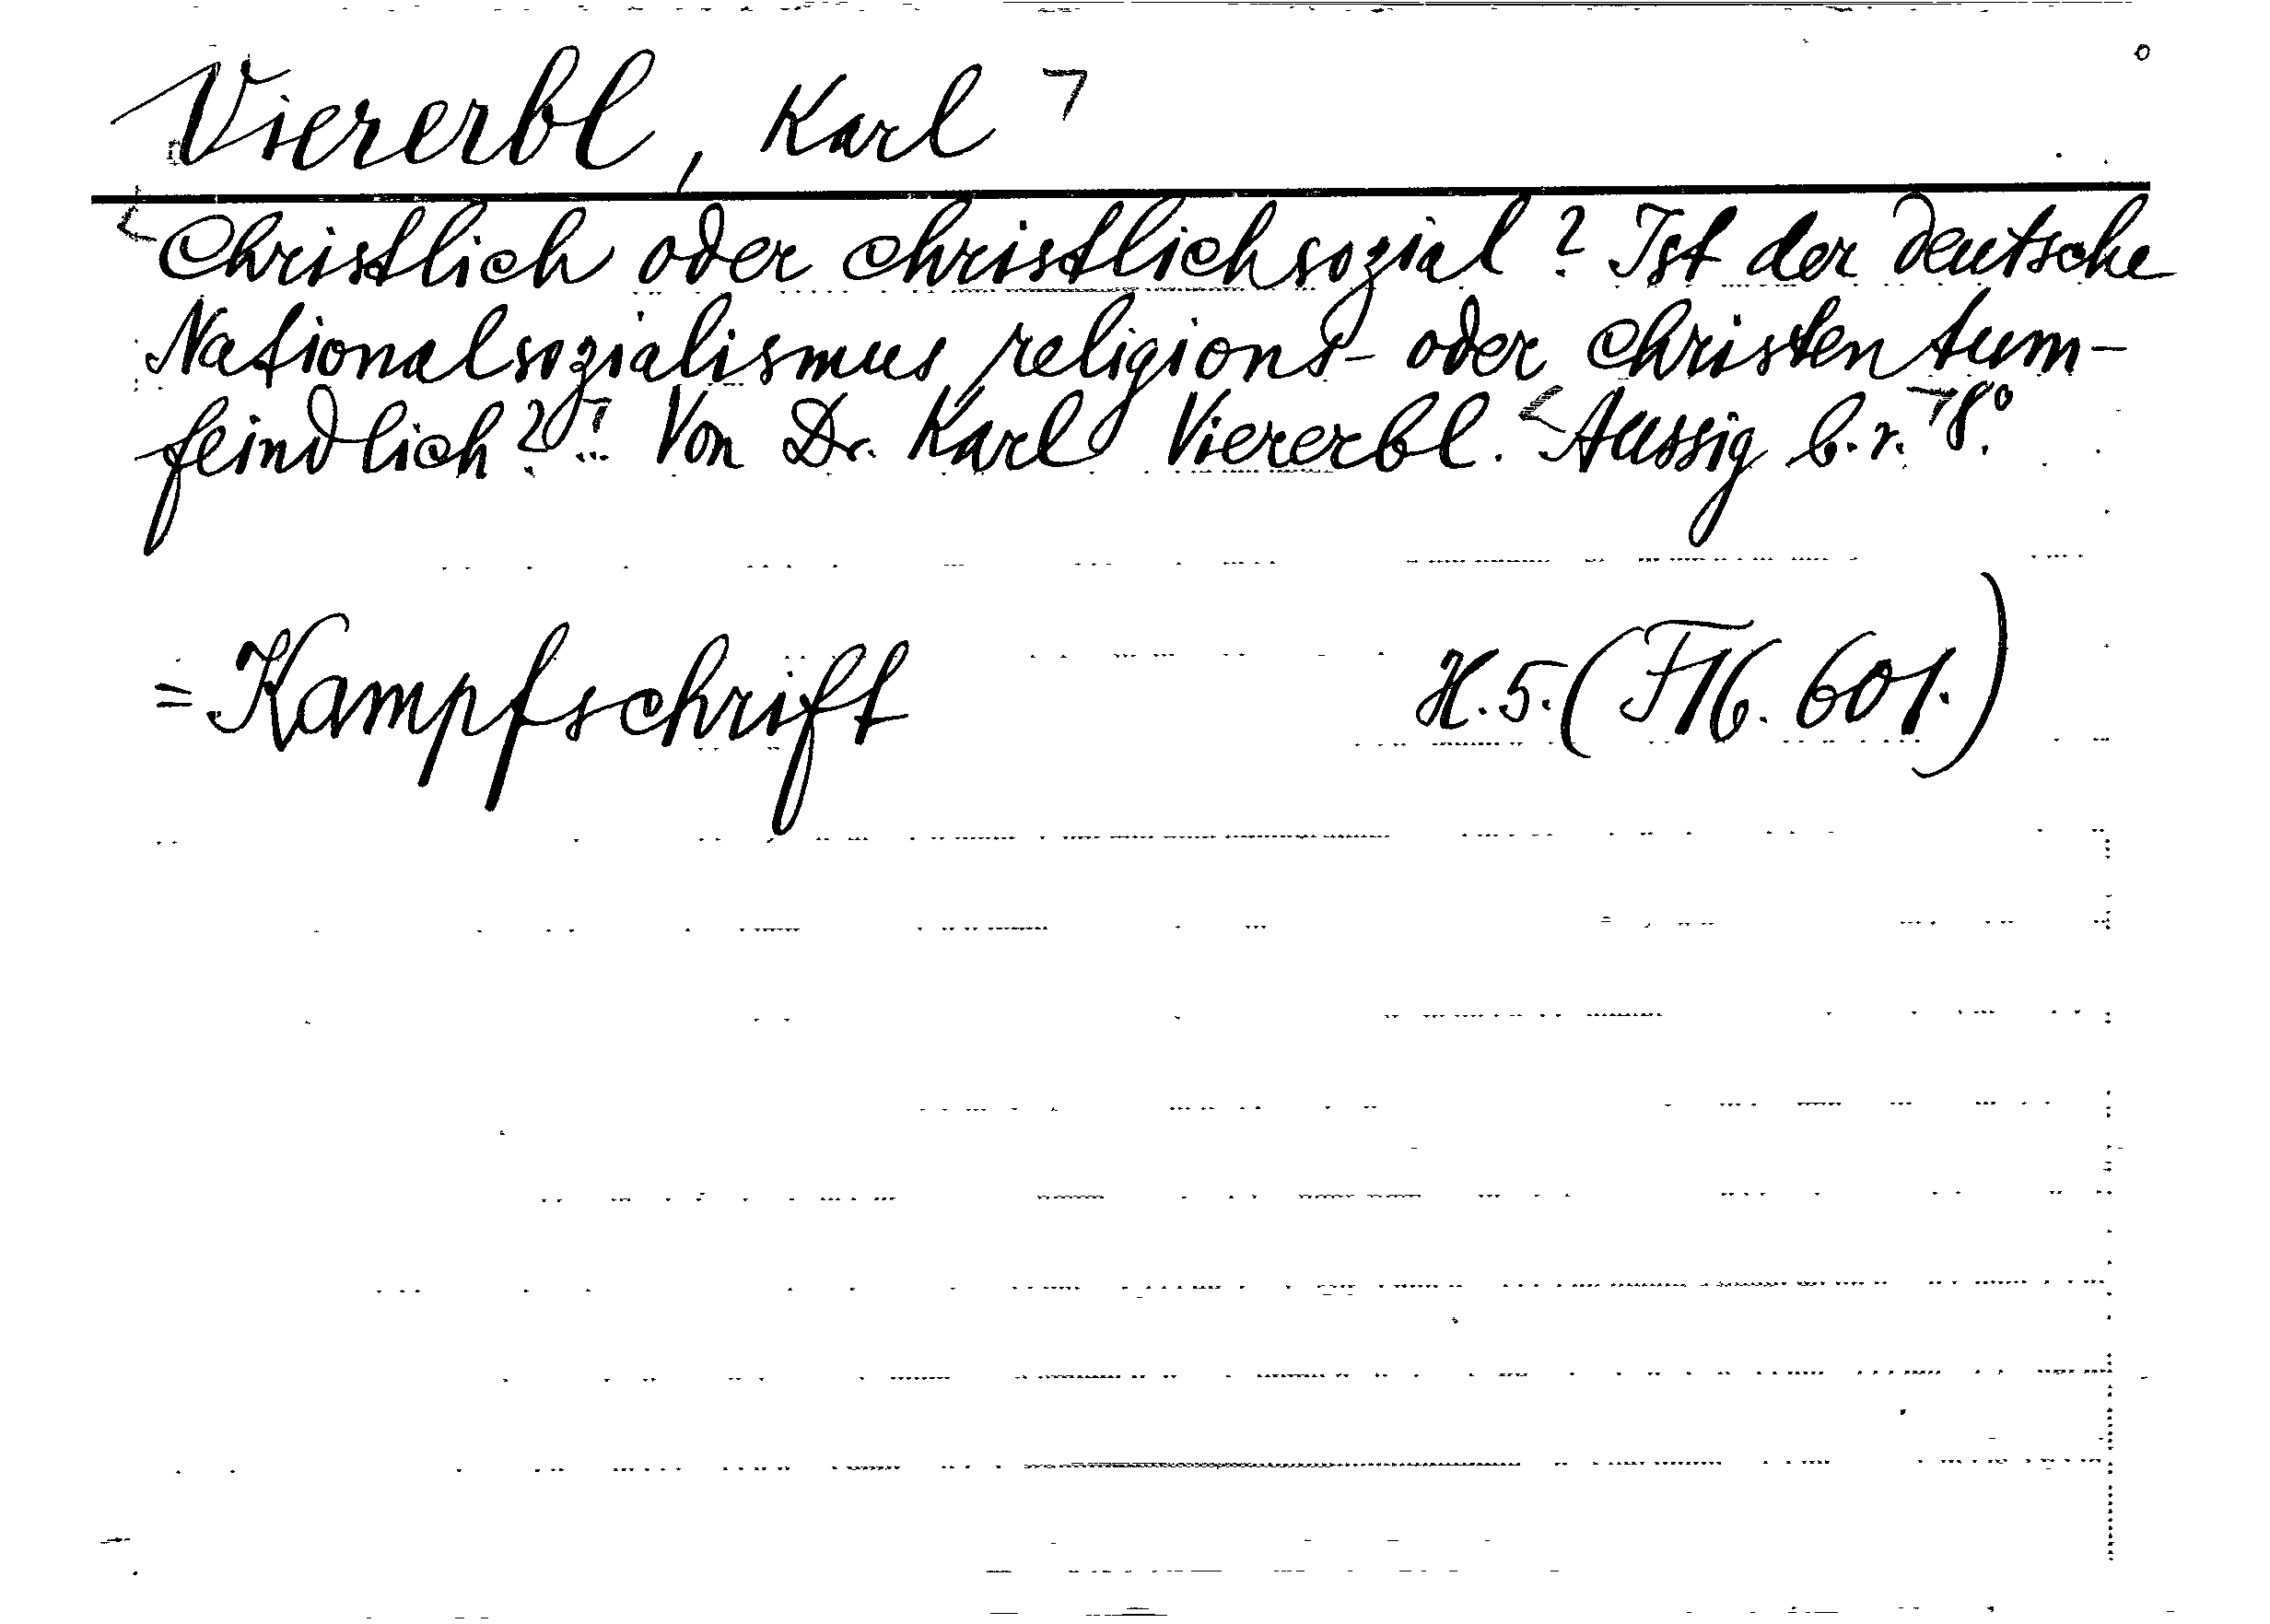 Viererbl, Karl
Christlich oder christlichsozial? Ist der deutsche
Nationalsozialismus religions- oder christentum-
feindlich? Von Dr. Karl Viererbl. Aussig b.r. 8°
= Kampfschrift H. 5. (